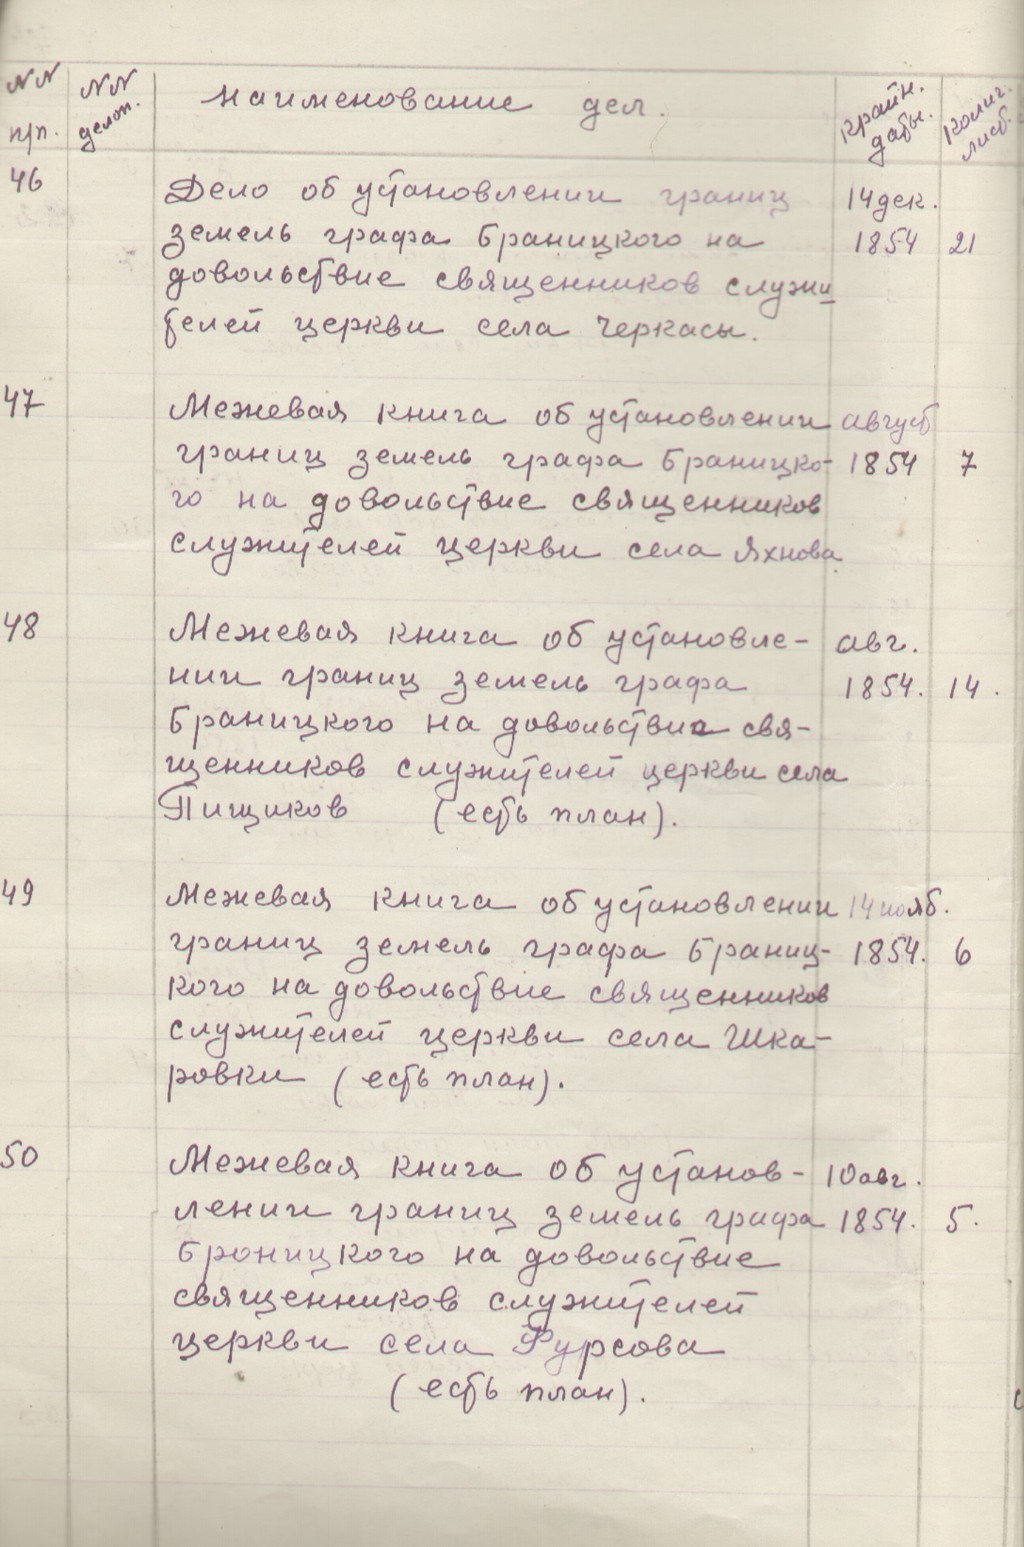 NN п/п. NN делоп. Наименование дел. Крайн. даты. Колич. лист.
46 Дело об установлении границ 14 дек.
земель графа Браницкого на 1854 21
довольствие священников служи
телей церкви села Черкасы.
47 Межевая книга об установлении август
границ земель графа Браницко- 1854 7
го на довольствие священников
служителей церкви села Яхнова
48 Межевая книга об установле- авг.
нии границ земель графа 1854. 14.
Браницкого на довольствие свя-
щенников служителей церкви села
Пищиков (есть план).
49 Межевая книга об установлении 14 нояб.
границ земель графа Браниц- 1854. 6
кого на довольствие священников
служителей церкви села Шка-
ровки (есть план).
50 Межевая книга об установ- 10 авг.
лении границ земель графа 1854. 5.
Броницкого на довольствие
священников служителей
церкви села Фурсова
(есть план).